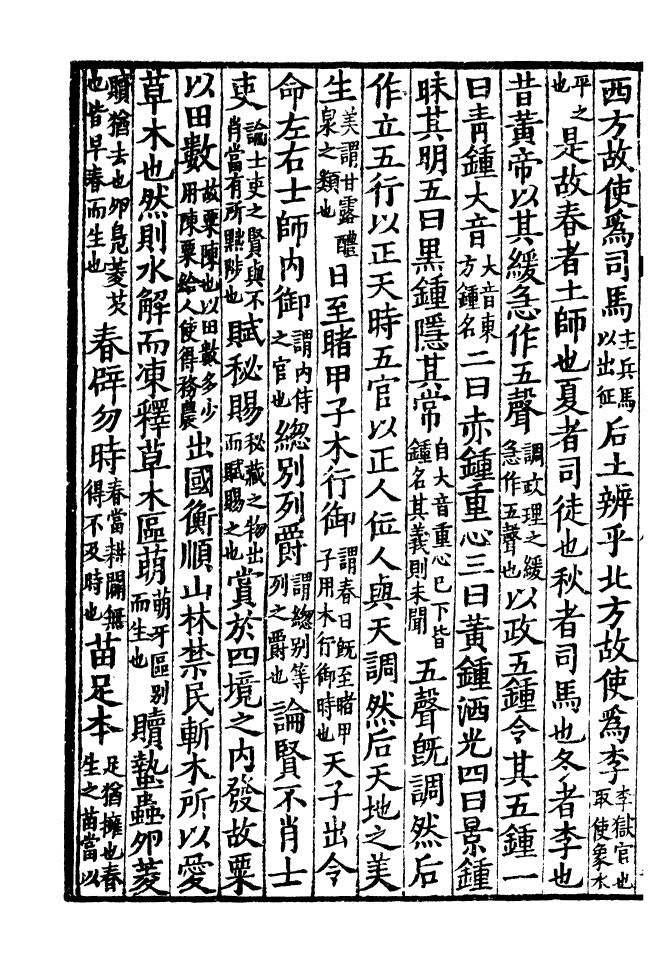 西方故使爲司馬主兵馬以出征后土辨乎北方故使爲李李獄官也取使象水
平之也是故春者土師也夏者司徒也秋者司馬也冬者李也
昔黃帝以其緩急作五聲調政理之緩急作五聲也以政五鍾令其五鍾一
曰青鍾大音大音東方鍾名二曰赤鍾重心三曰黃鍾洒光四曰景鍾
昧其明五曰黑鍾隱其常自大音重心已下皆鍾名其義則未聞五聲旣調然后
作立五行以正天時五官以正人位人與天調然后天地之美
生美謂甘露醴泉之類也日至睹甲子木行御謂春日旣至睹甲子用木行御時也天子出令
命左右士師內御謂內侍之官也緫別列爵謂緫別等列之爵也論賢不肖士
吏論士吏之賢與不肖當有所黜陟也賦秘賜秘藏之物出而賦賜之也賞於四境之內發故粟
以田數故粟陳也以田數多少用陳粟給人使得務農出國衡順山林禁民斬木所以愛
草木也然則水解而凍釋草木區萌萌牙區別而生也贖蟄蟲卵菱
贖猶去也卵鳧菱芡也皆早春而生也春辟勿時春當耕闢無得不及時也苗足本足猶擁也春生之苗當以